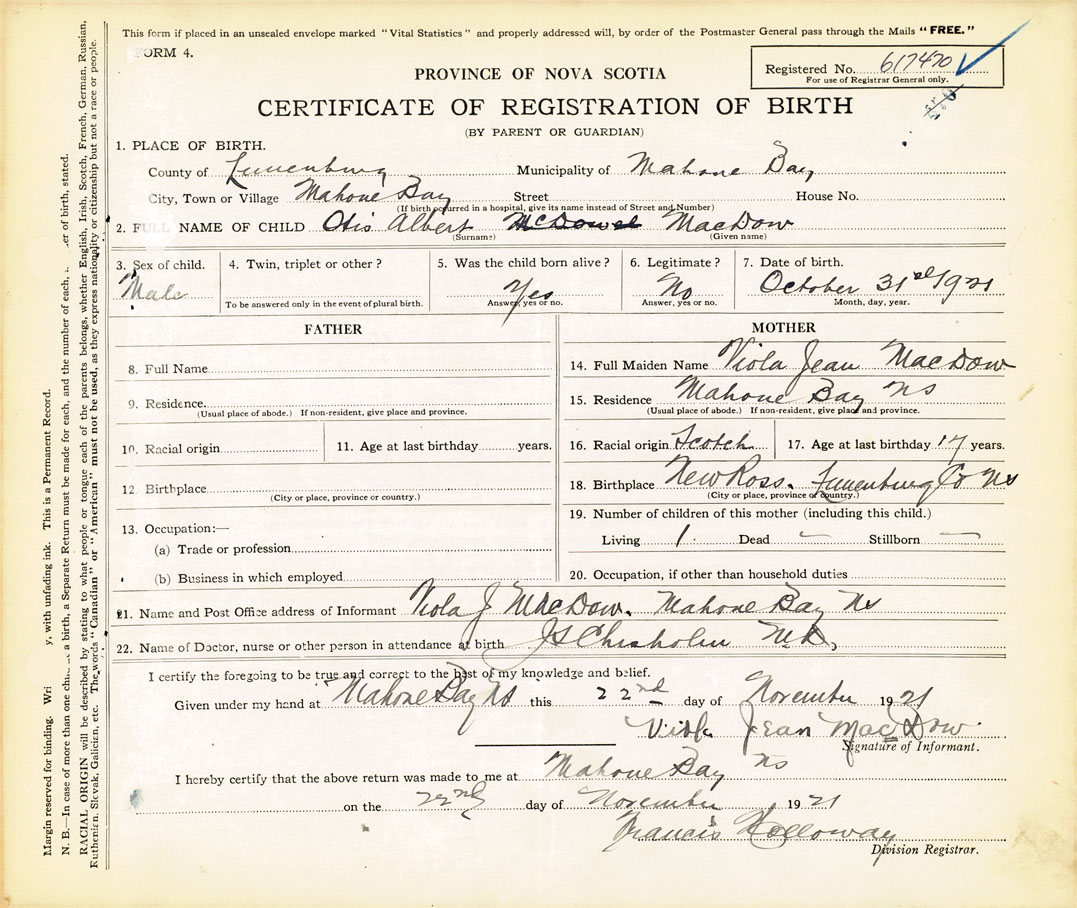 This form if placed in an unsealed envelope marked "Vital Statistics" and properly addressed will, by order of the Postmaster General pass through the Mails "FREE."
FORM 4.
Registered No. 617470
For use of Registrar General only.
PROVINCE OF NOVA SCOTIA
CERTIFICATE OF REGISTRATION OF BIRTH
(BY PARENT OR GUARDIAN)
1. PLACE OF BIRTH.
County of Lunenburg Municipality of Mahone Bay
City, Town or Village Mahone Bay Street House No.
(If birth occurred in a hospital, give its name instead of Street and Number)
2. FULL NAME OF CHILD Otis Albert McDowel MacDow
(Surname) (Given name)
3. Sex of child. 4. Twin, triplet or other? 5. Was the child born alive? 6. Legitimate? 7. Date of birth.
Male Yes No October 31st 1921
To be answered only in the event of plural birth. Answer, yes or no. Answer, yes or no. Month, day, year.
FATHER
8. Full Name
9. Residence.
(Usual place of abode.) If non-resident, give place and province.
10. Racial origin 11. Age at last birthday years.
12 Birthplace
(City or place, province or country.)
13. Occupation:—
(a) Trade or profession
(b) Business in which employed
MOTHER
14. Full Maiden Name Viola Jean MacDow
15. Residence Mahone Bay NS
(Usual place of abode.) If non-resident, give place and province.
16. Racial origin Scotch 17. Age at last birthday 17 years.
18. Birthplace New Ross. Lunenburg Co NS
(City or place, province or country.)
19. Number of children of this mother (including this child.)
Living 1 Dead — Stillborn —
20. Occupation, if other than household duties
21. Name and Post Office address of Informant Viola J MacDow. Mahone Bay NS
22. Name of Doctor, nurse or other person in attendance at birth J S Chisholm M.D.
I certify the foregoing to be true and correct to the best of my knowledge and belief.
Given under my hand at Mahone Bay NS this 22nd day of November 1921
Viola Jean MacDow
Signature of Informant.
I hereby certify that the above return was made to me at Mahone Bay NS
on the 22nd day of November 1921
Francis Holloway
Division Registrar.
Margin reserved for binding. Wri y, with unfading ink. This is a Permanent Record.
N. B.—In case of more than one a birth, a Separate Return must be made for each, and the number of each, of birth, stated.
RACIAL ORIGIN will be described by stating to what people or tongue each of the parents belongs, whether English, Irish, Scotch, French, German, Russian,
Ruthenian, Slovak, Galician, etc. The words "Canadian" or "American" must not be used, as they express nationality or citizenship but not a race or people.